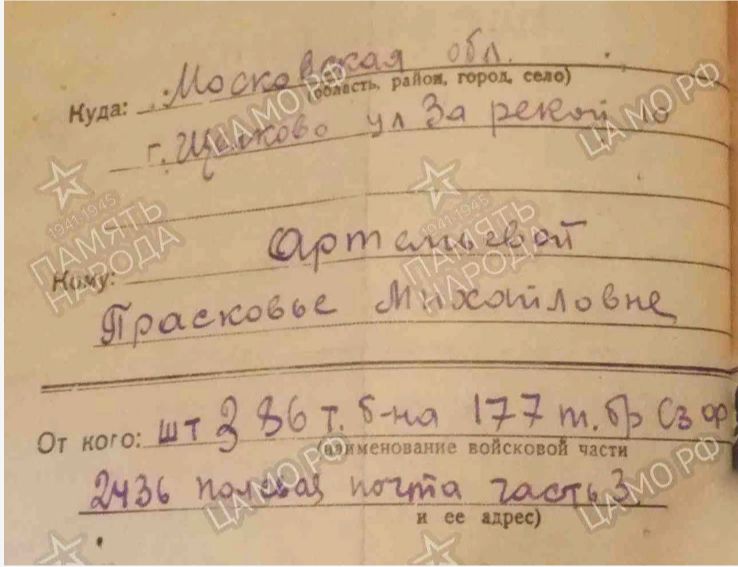 Куда: Московская обл.
(область, район, город, село)
г. Щелково ул За рекой 10
Кому: Артемьевой
Прасковье Михайловне
От кого: шт 386 т. б-на 177 т. бр Сз фр
(наименование войсковой части
2436 полевая почта часть 3.
и ее адрес)
1941-1945
ПАМЯТЬ
НАРОДА
ЦАМО РФ
1941-1945
ПАМЯТЬ
НАРОДА
ЦАМО РФ
ЦАМО РФ
ЦАМО РФ